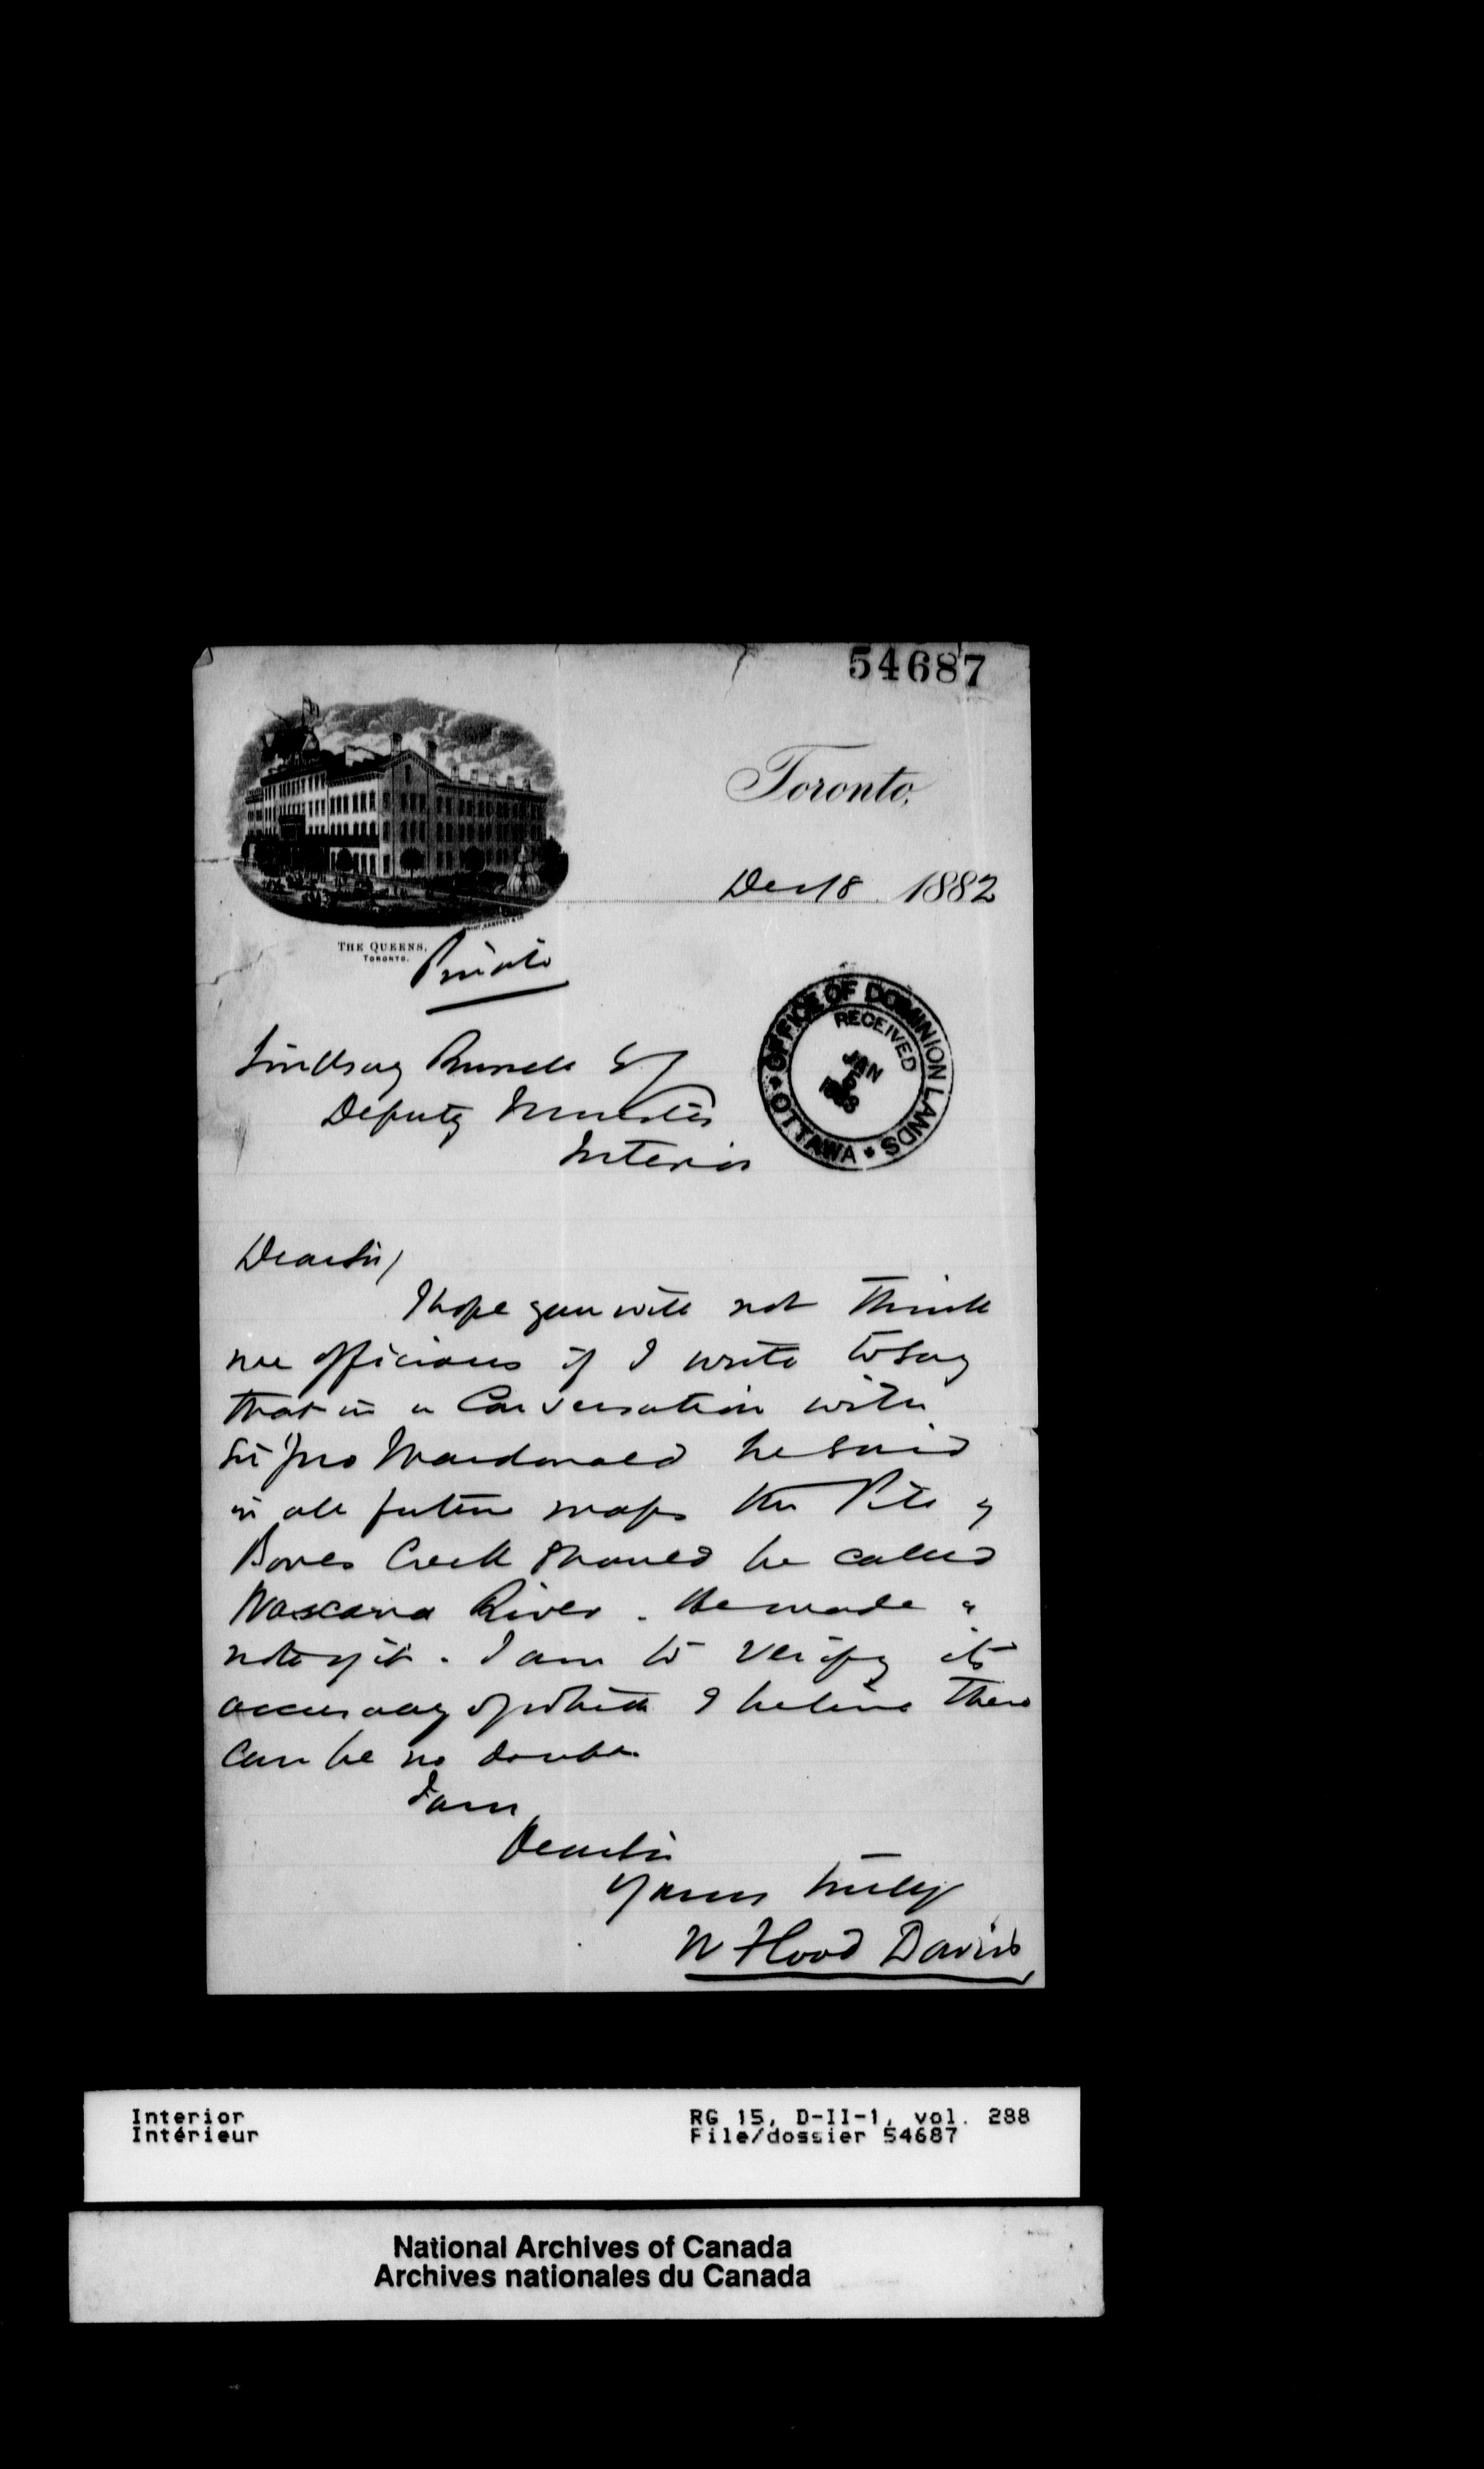 54687
Toronto,
Dec 18 1882
THE QUEENS,
TORONTO.
Private
OFFICE OF DOMINION LANDS
RECEIVED
JAN
5
1883
OTTAWA
Lindsay Russell Esq
Deputy Minister
Interior
Dear Sir,
I hope you will not think
me officious if I write to say
that in a Conversation with
Sir Jno Macdonald he said
in all future maps the Pile of
Bones Creek should be called
Wascana River. He made a
note of it. I am to verify its
accuracy of which I believe there
can be no doubt.
I am
Dear Sir
Yours truly
N Flood Davin
Interior
Intérieur
RG 15, D-II-1, vol. 288
File/dossier 54687
National Archives of Canada
Archives nationales du Canada